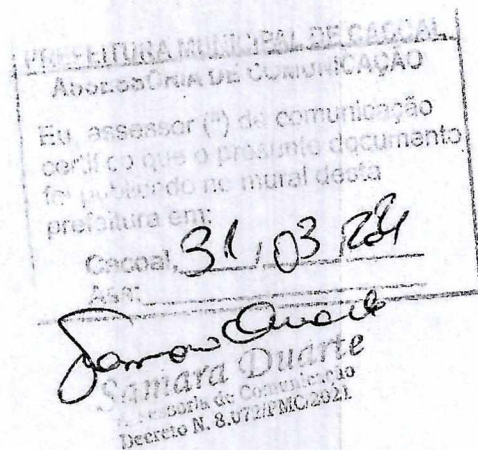 PREFEITURA MUNICIPAL DE CACOAL
ASSESSORIA DE COMUNICAÇÃO
Eu, assessor (ª) de comunicação
certifico que o presente documento
foi publicado no mural desta
prefeitura em:
Cacoal, 31 / 03 /
Ass:
Samara Duarte
Assessoria de Comunicação
Decreto N. 8.072/PMC/2021